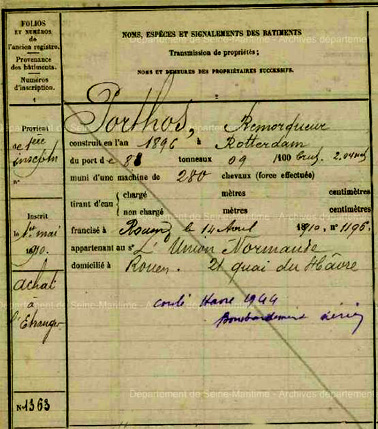 FOLIOS
ET NUMÉROS
de
l'ancien registre.
Provenance
des bâtiments.
Numéros
d'inscription.
1
NOMS, ESPÈCES ET SIGNALEMENTS DES BATIMENTS
Transmission de propriétés ;
NOMS ET DEMEURES DES PROPRIÉTAIRES SUCCESSIFS.
2
Porthos, Remorqueur
Provient
de 1ère
inscript n
n°
construit en l'an 1896 à Rotterdam
du port de 88 tonneaux 09 /100
muni d'une machine de 280 chevaux (force effectuée)
tirant d'eau chargé mètres centimètres
non chargé mètres centimètres
Inscrit
le 1er mai
1910.
francisé à Rouen le 14 Avril 1910. n° 1196.
appartenant au sr L'Union Normande
domicilié à Rouen. 21 quai du Hâvre
Achat
à
l'Etranger
coulé Havre 1944
Bombardement aérien
N° 1363
Département de Seine-Maritime - Archives départementales